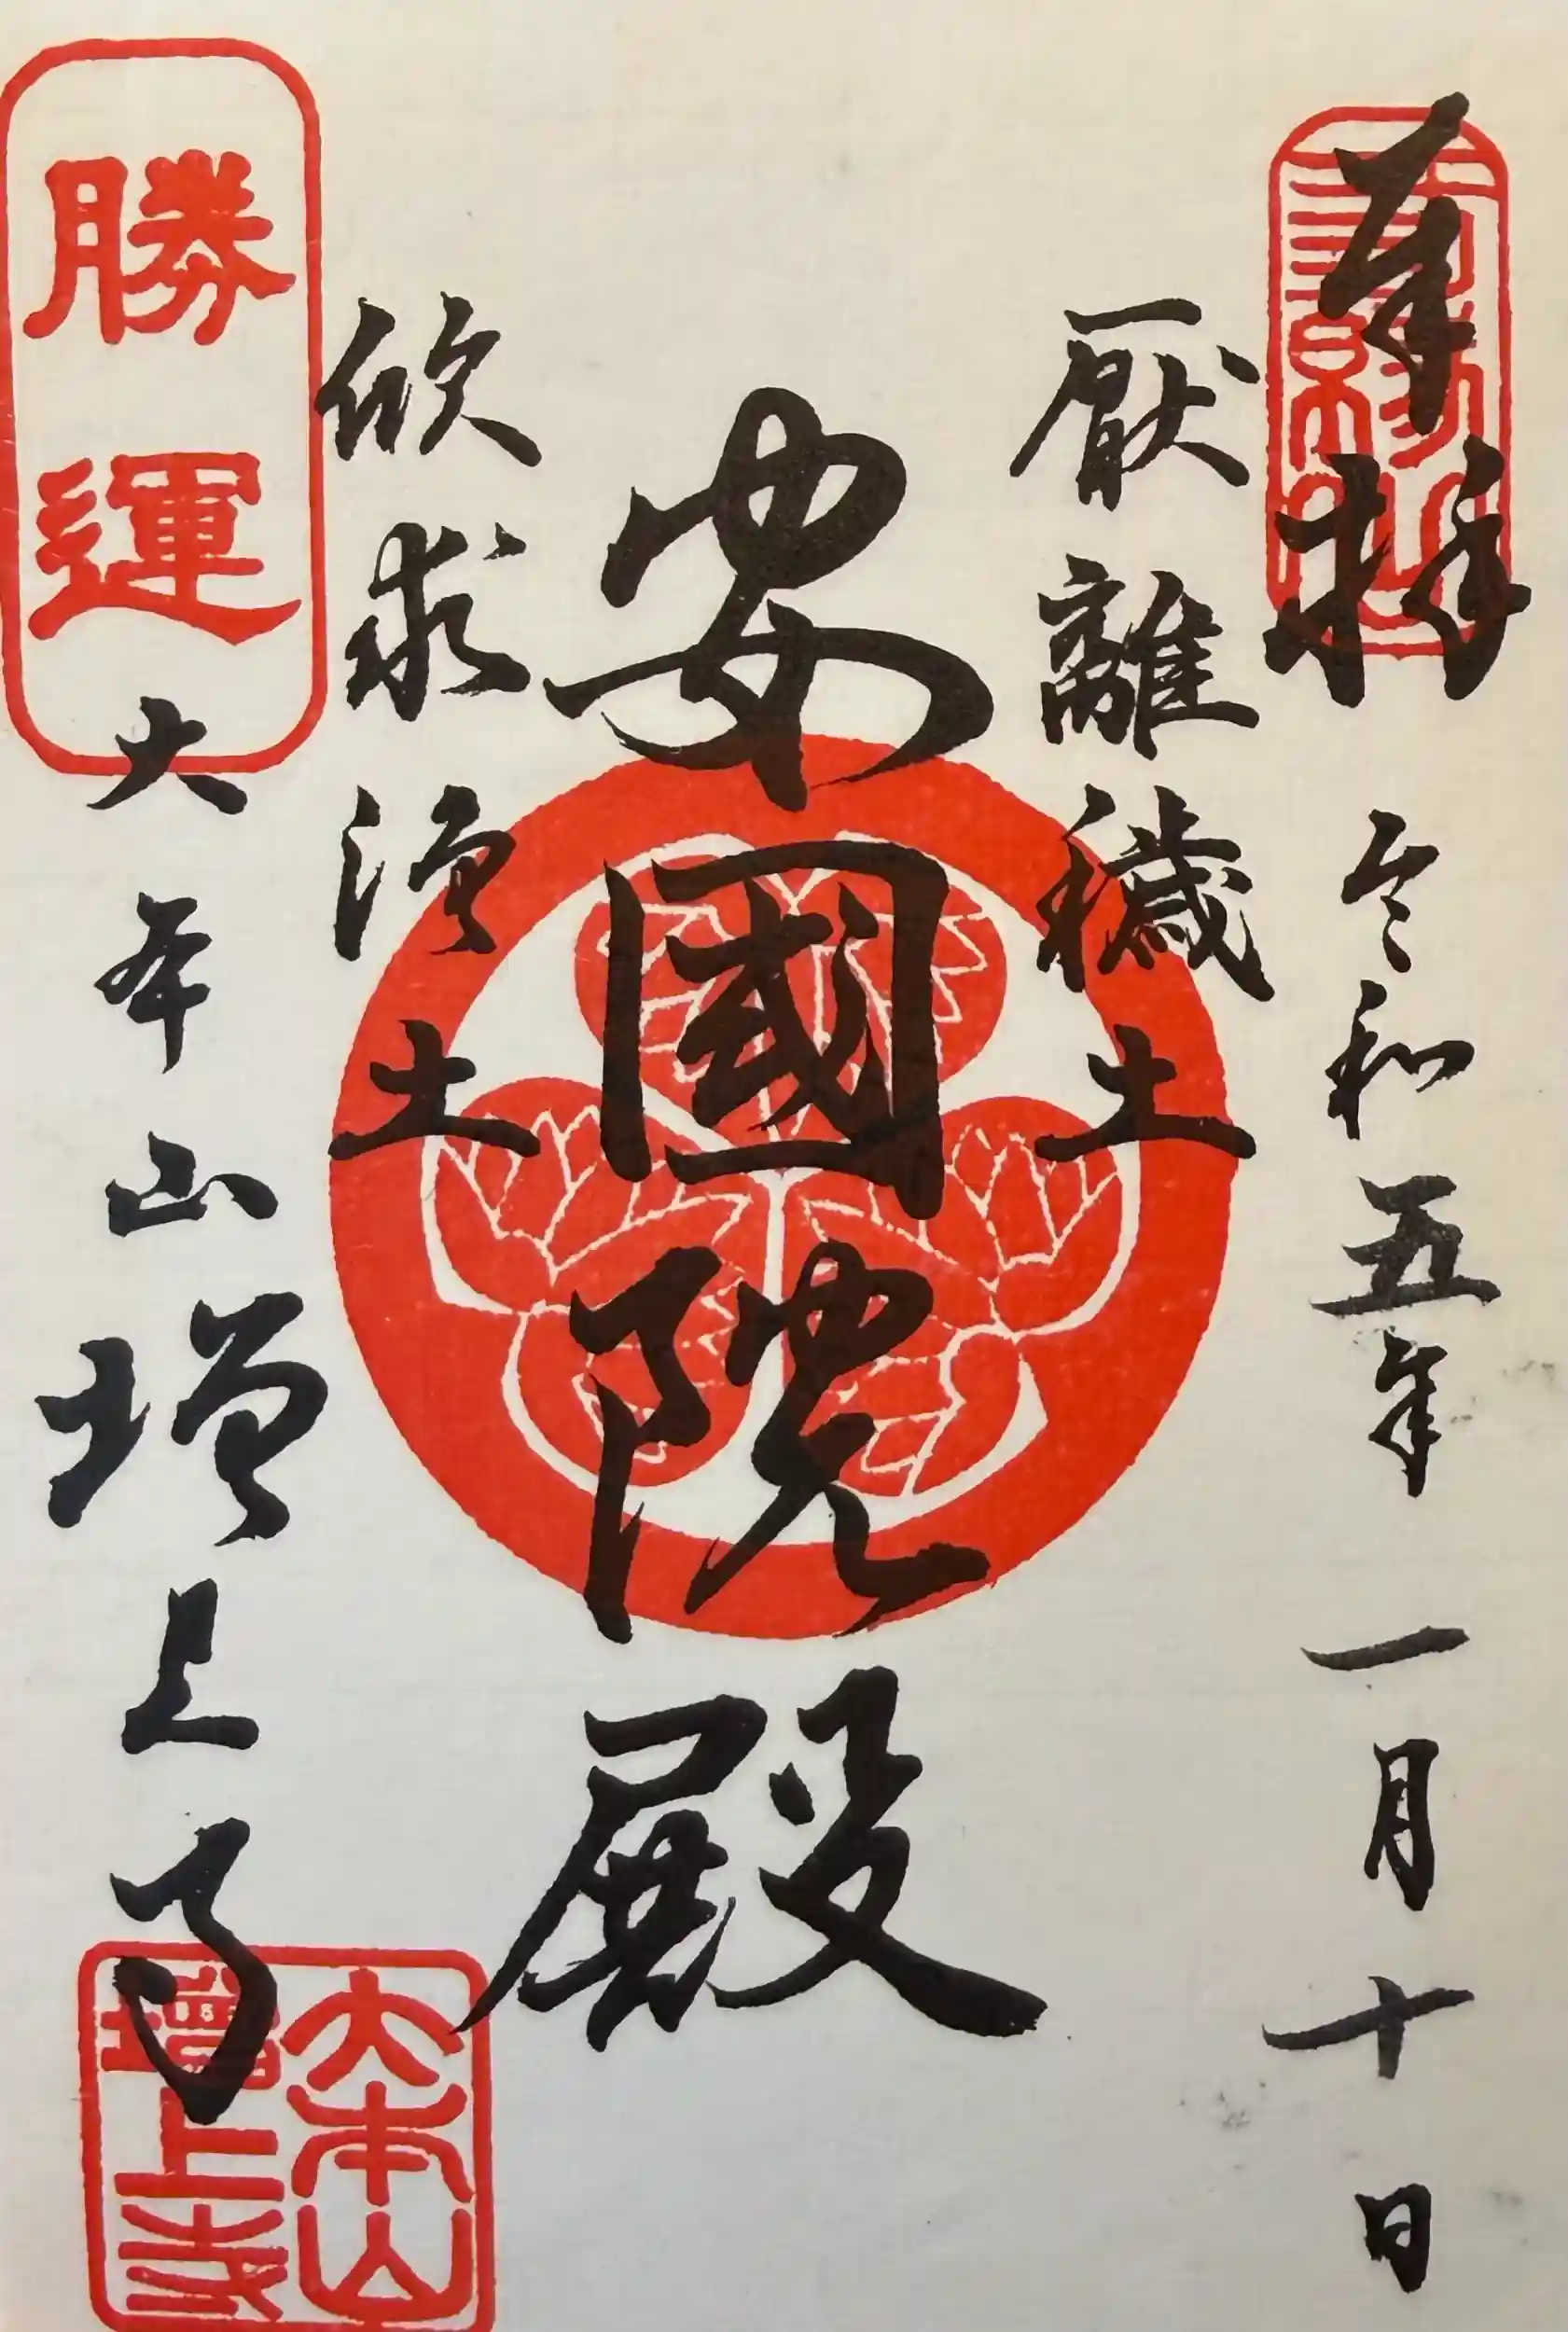 奉拝
令和五年一月十日
厭離穢土
安國院殿
欣求淨土
勝運
大本山増上寺
大本山
増上寺